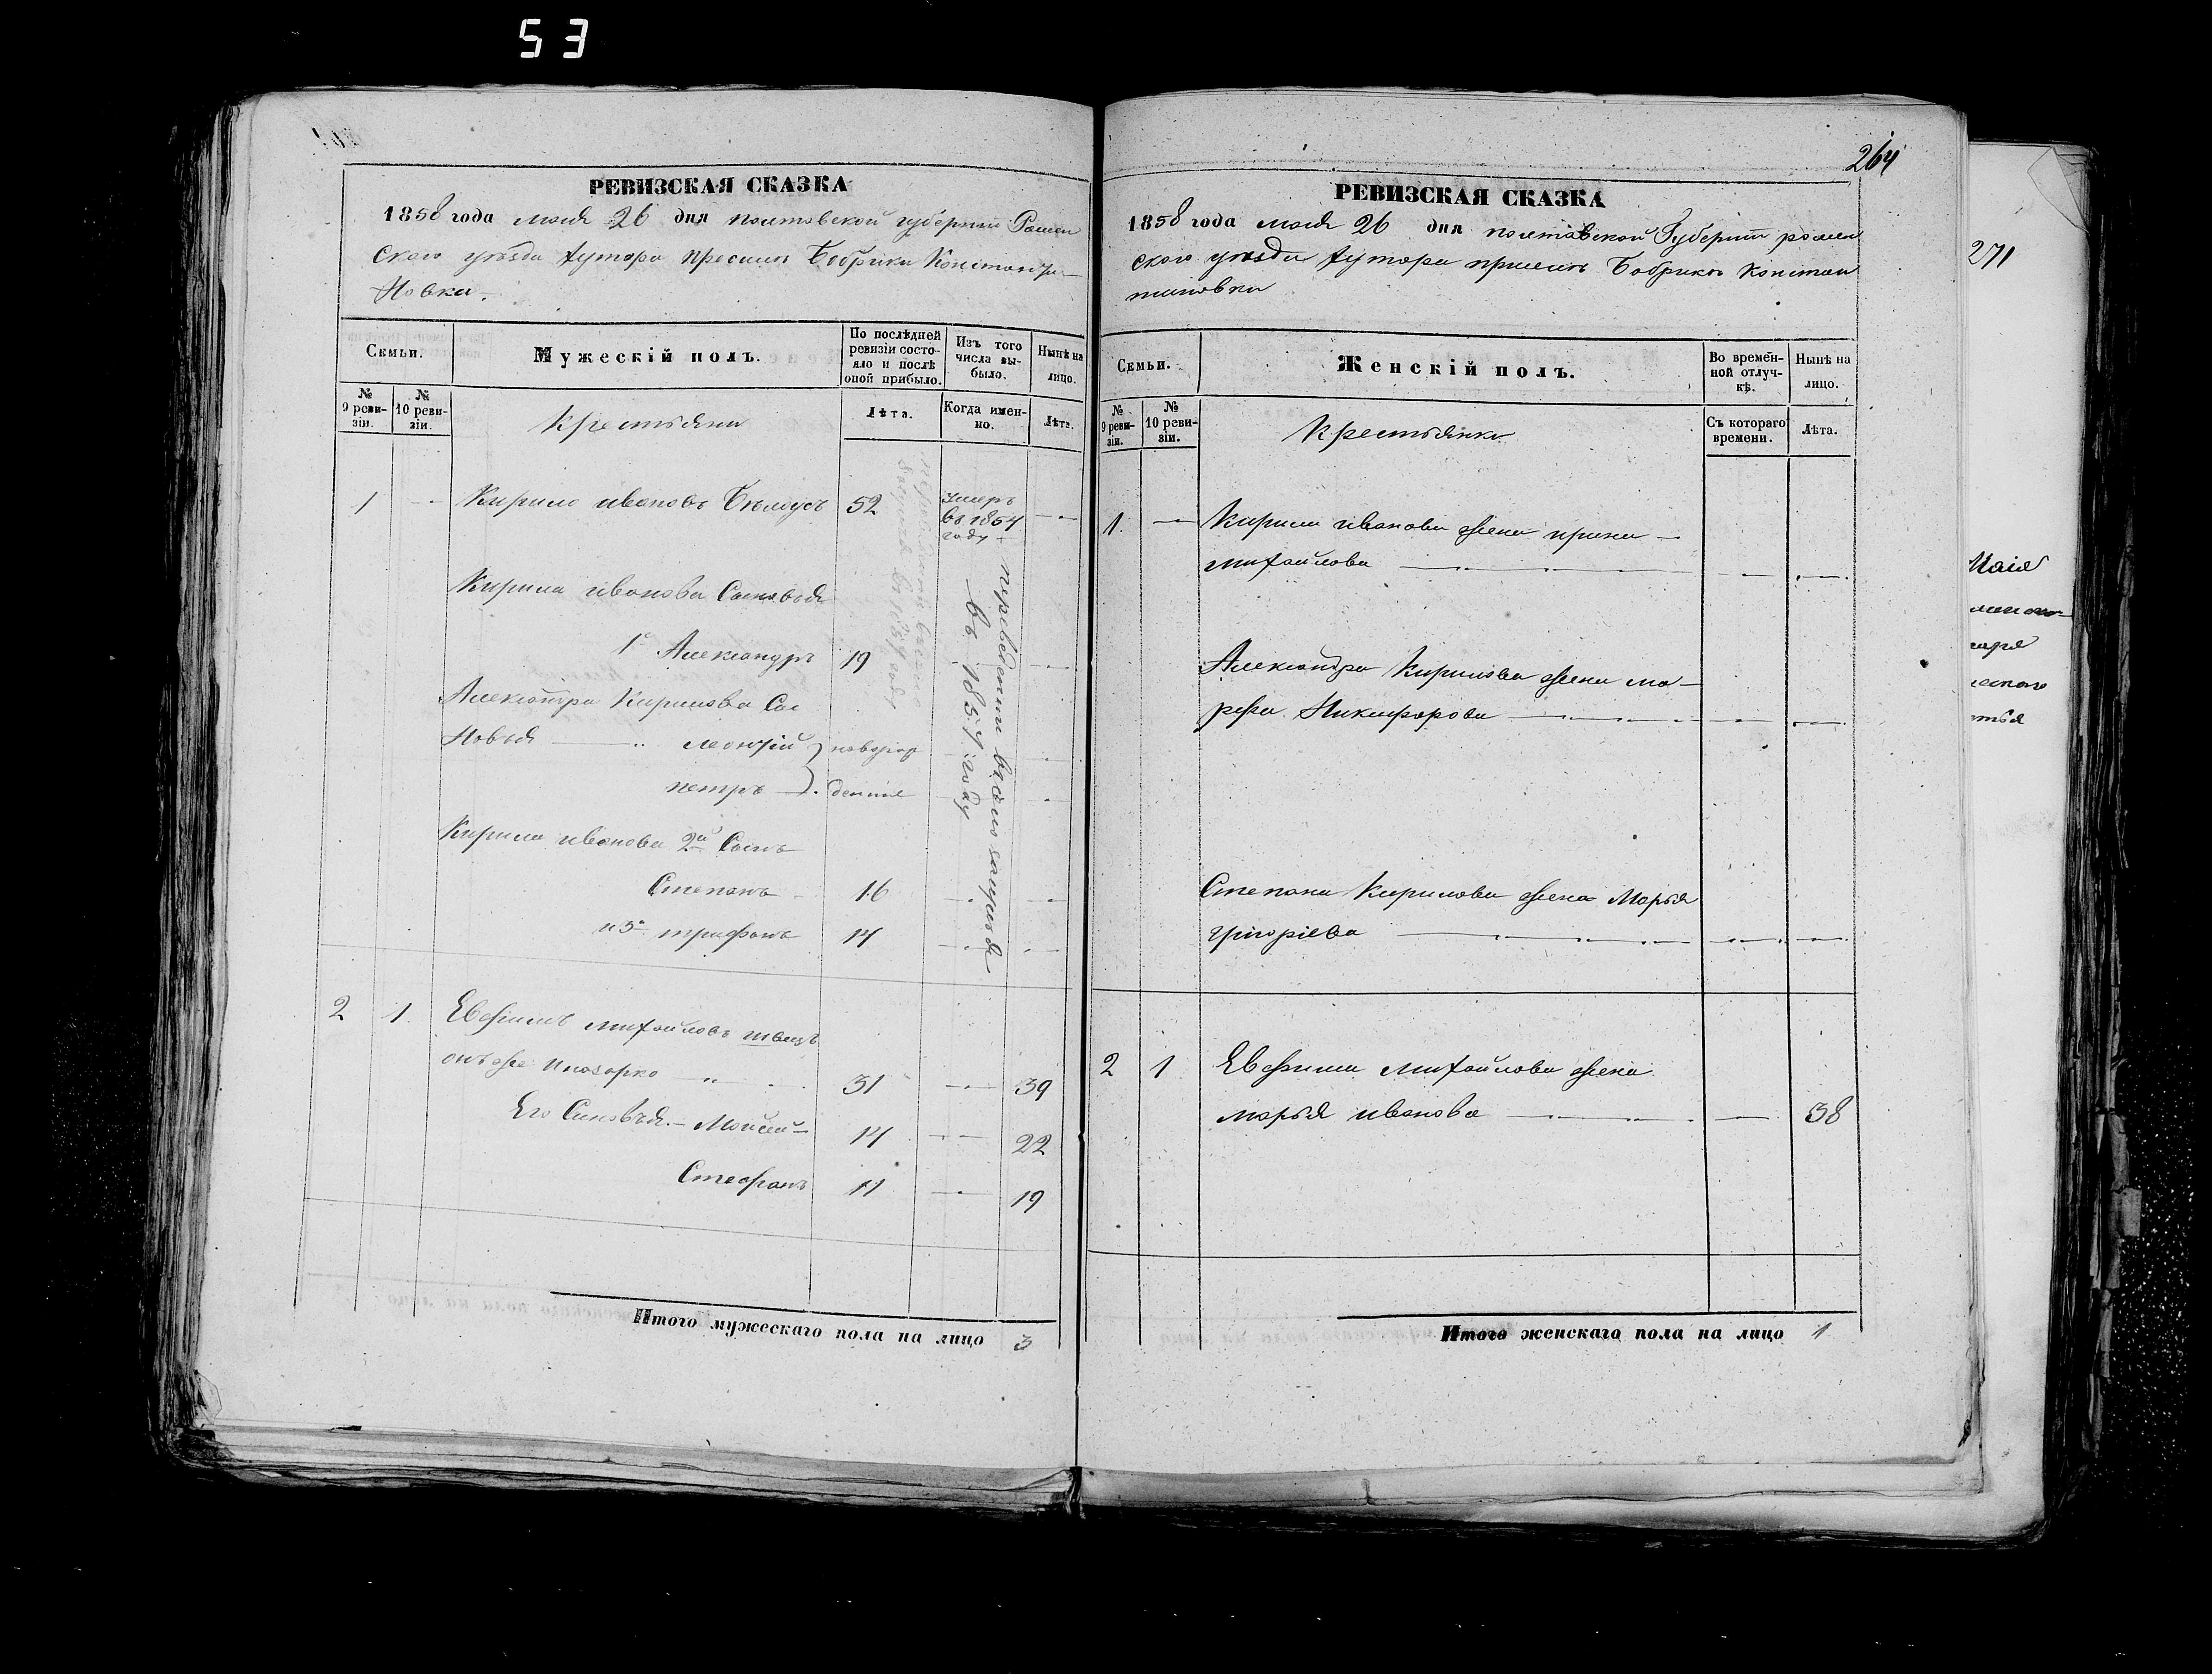 53
РЕВИЗСКАЯ СКАЗКА
1858 года мая 26 дня полтавской губернии Ромен
ского уезда хутора при селе Бобрики Константи
Новка.
Семьи.
Мужескій полъ.
По послѣдней ревизіи состояло и послѣ оной прибыло.
Изъ того числа выбыло.
Нынѣ на лицо.
№ 9 ревизіи.
№ 10 ревизіи.
Крестьяни
Лѣта.
Когда именно.
Лѣта.
1 Кирило ивановъ Бѣлоусъ 52 умеръ
въ 1854
году
Кирила иванова Сыновья
1й Александръ 19
Александра Кирилова Сы
новья леонтій новорож
петръ денные
Кирила иванова 2й Сынъ
Степанъ 16
и 3й трифонъ 14
въ 1854 году
2 1 Евфимъ михайловъ швецъ
онъ же 31 39
Его Сыновья Мойсей 14 22
Стефанъ 11 19
Итого мужескаго пола на лицо 3
264
РЕВИЗСКАЯ СКАЗКА
1858 года мая 26 дня полтавской Губерніи ромен
ского уезда хутора при селе Бобрикъ констан
тиновки
Семьи.
Женскій полъ.
Во временной отлучкѣ.
Нынѣ на лицо.
№ 9 ревизіи.
№ 10 ревизіи.
Крестьянки
Съ котораго времени.
Лѣта.
1. Кирила иванова жена ирина
михайлова
Александра Кирилова жена ма-
рфа Никифорова
Степана Кирилова жена Марья
григоріева
2 1 Евфима михайлова жена
марья иванова 38
Итого женскаго пола на лицо 1
271
Маія